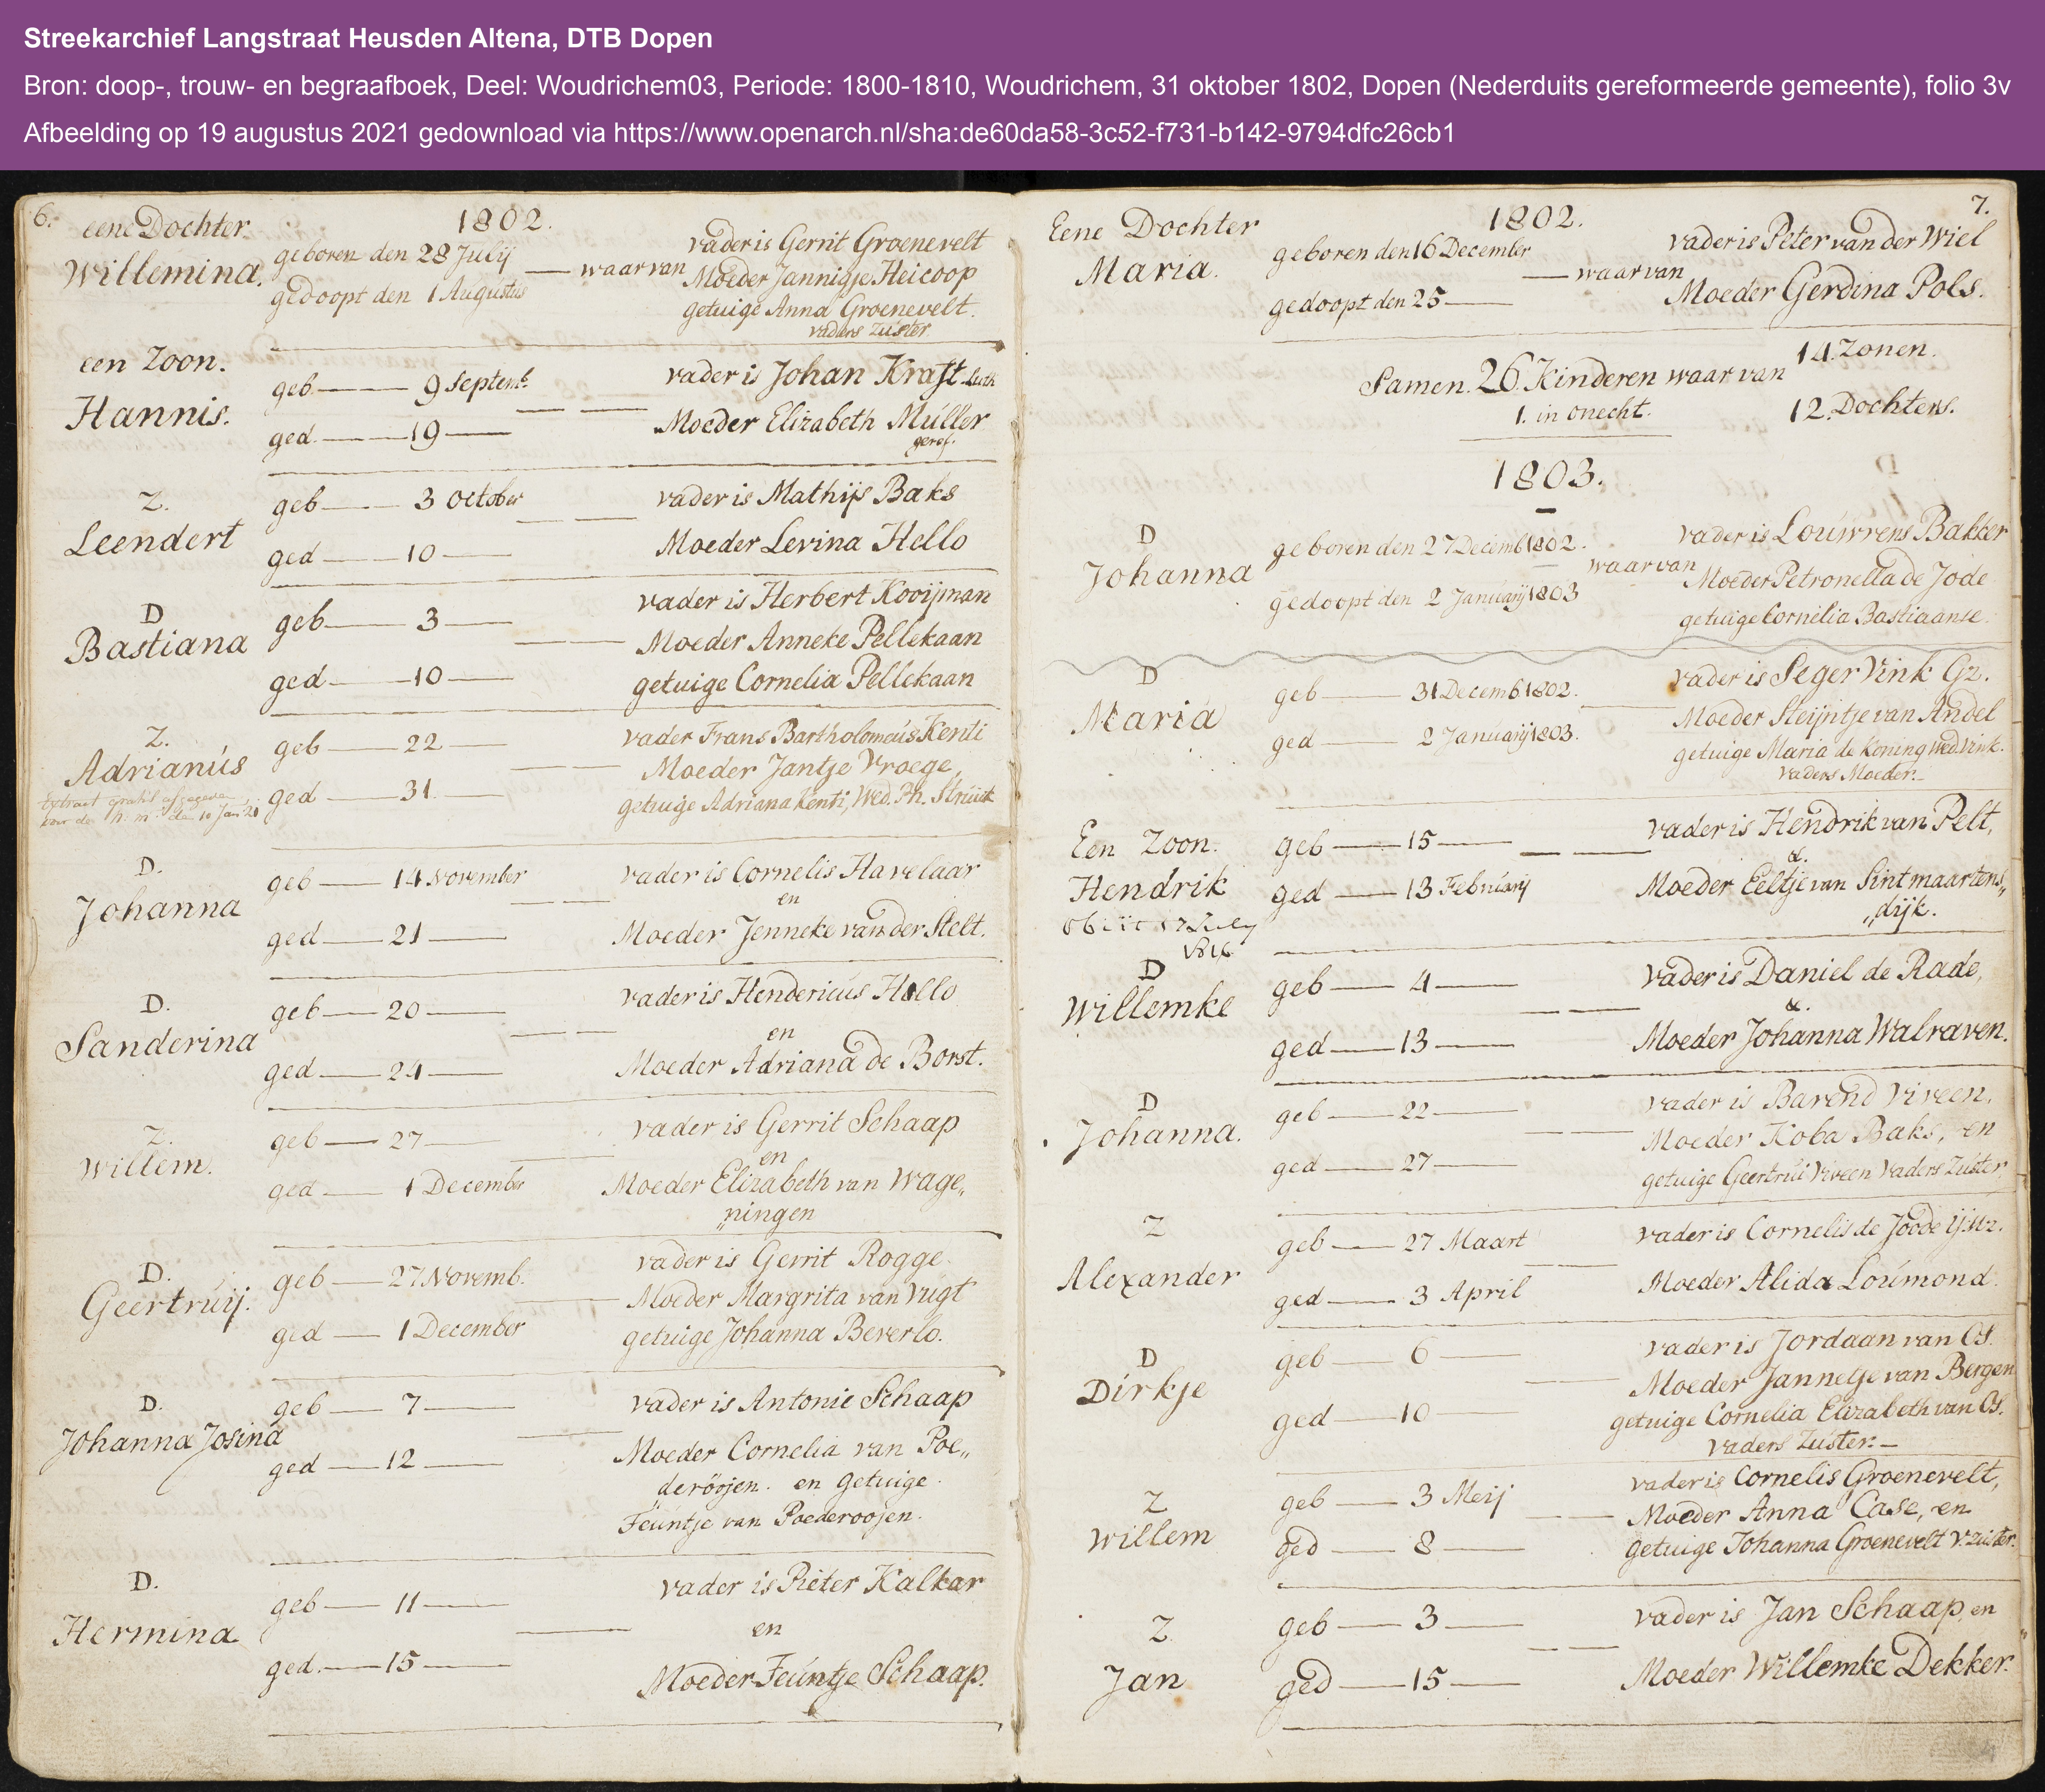 Streekarchief Langstraat Heusden Altena, DTB Dopen
Bron: doop-, trouw- en begraafboek, Deel: Woudrichem03, Periode: 1800-1810, Woudrichem, 31 oktober 1802, Dopen (Nederduits gereformeerde gemeente), folio 3v
Afbeelding op 19 augustus 2021 gedownload via https://www.openarch.nl/sha:de60da58-3c52-f731-b142-9794dfc26cb1
6.
1802.
eene Dochter
Willemina.
geboren den 28 Julij
gedoopt den 1 Augustus
— waarvan
vader is Gerrit Groenevelt
Moeder Jannigje Heicoop
getuige Anna Groenevelt.
vaders zuster
een Zoon.
Hannis.
geb — 9 Septemb.
ged. — 19 —
vader is Johan Kraft Luth
Moeder Elizabeth Müller
geref.
Z.
Leendert
geb — 3 October
ged — 10 —
vader is Mathijs Baks
Moeder Levina Hello
D
Bastiana
geb — 3 —
ged — 10 —
vader is Herbert Kooijman
Moeder Anneke Pellekaan
getuige Cornelia Pellekaan
Z.
Adrianús
Extract gratis afgegeven
voor de N. M. den 10 Jan 21
geb — 22 —
ged — 31 —
vader Frans Bartholomeús Kenti
Moeder Jantje Vroege
getuige Adriana Kenti, Wed. Ph. Strúik
D.
Johanna
geb — 14 November
ged — 21 —
vader is Cornelis Havelaar
en
Moeder Jenneke van der Stelt.
D.
Sanderina
geb — 20 —
ged — 24 —
vader is Hendericus Hello
en
Moeder Adriana de Borst.
Z.
Willem.
geb — 27 —
ged — 1 December
vader is Gerrit Schaap
en
Moeder Elizabeth van Wage„
„ningen
D.
Geertrúij.
geb — 27 Novemb.
ged — 1 December
vader is Gerrit Rogge.
Moeder Margrita van Vúgt
getuige Johanna Beverlo.
D.
Johanna Josina
geb — 7 —
ged — 12 —
vader is Antonie Schaap
Moeder Cornelia van Poe„
„deröojen. en Getuige.
Feúntje van Poederoojen.
D.
Hermina
geb — 11 —
ged. — 15 —
vader is Pieter Kalkar
en
Moeder Feúntje Schaap.
7.
1802.
Eene Dochter
Maria.
geboren den 16 December
gedoopt den 25 —
— waarvan
vader is Peter van der Wiel
Moeder Gerdina Pols.
Samen. 26 Kinderen waar van
14. Zonen.
1. in onecht.
12. Dochters.
1803.
D
Johanna
geboren den 27 Decemb 1802.
gedoopt den 2 Janúarij 1803
waarvan
vader is Loúwrens Bakker
Moeder Petronella de Jode
getuige Cornelia Bastiaanse.
D
Maria
geb — 31 Decemb 1802.
ged — 2 Janúarij 1803.
vader is Seger Vink Gz.
Moeder Steijntje van Andel
getuige Maria de Koning Wed. Vink.
vaders Moeder. —
Een Zoon.
Hendrik
obiit 17 July
1816
geb — 15 —
ged — 13 Febrúarij
vader is Hendrik van Pelt,
&.
Moeder Eeltje van Sintmaartens„
„dijk.
D
Willemke
geb — 4 —
ged — 13 —
vader is Daniel de Rade,
&.
Moeder Johanna Walraven.
D
Johanna.
geb — 22 —
ged — 27 —
vader is Barend Viveen.
Moeder Koba Baks, en
getuige Geertrúi Viveen Vaders Zúster
Z
Alexander
geb — 27 Maart
ged — 3 April
vader is Cornelis de Joode
Moeder Alida Loúmond.
D
Dirkje
geb — 6 —
ged — 10 —
vader is Jordaan van Os.
Moeder Jannetje van Bergen
getuige Cornelia Elizabeth van Os.
vaders Zuster. —
Z
Willem
geb — 3 Meij
ged — 8 —
vader is Cornelis Groenevelt,
Moeder Anna Case, en
getuige Johanna Groenevelt v. zúster.
Z
Jan
geb — 3 —
ged — 15 —
vader is Jan Schaap, en
Moeder Willemke Dekker.